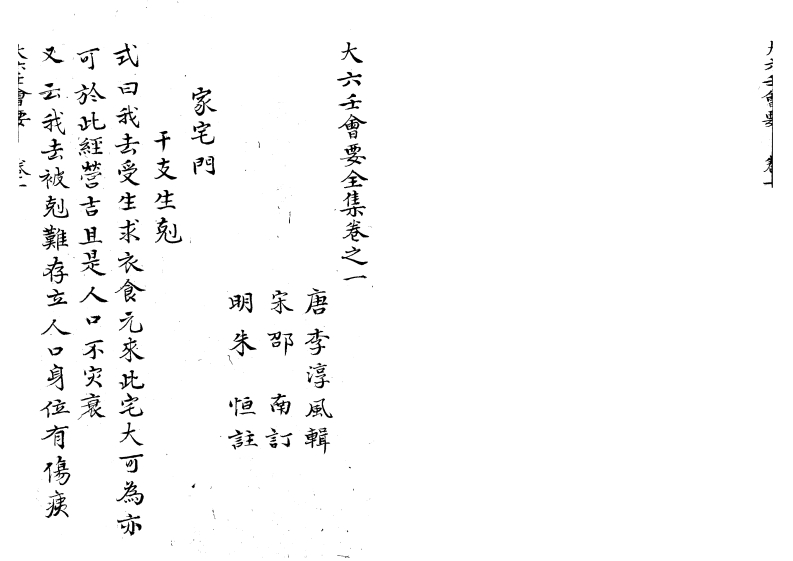 大六壬會要　卷一
大六壬會要全集卷之一
唐李淳風輯
宋邵　南訂
明朱　恒註
家宅門
干支生剋
式曰我去受生求衣食元來此宅大可為亦
可於此經營吉且是人口不灾衰
又云我去被剋難存立人口身位有傷痍
大六壬會要　卷一